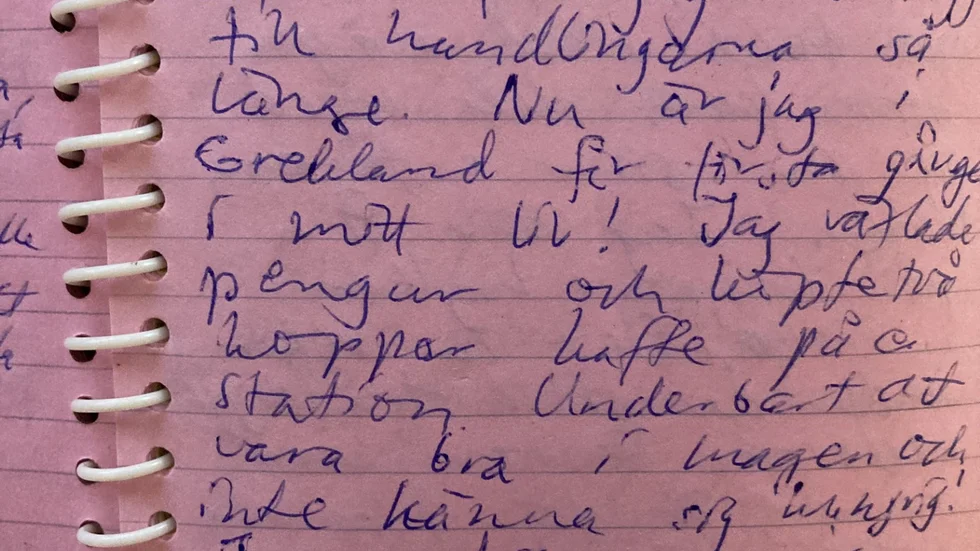 till handlingarna så
länge. Nu är jag i
Grekland för första gången
i mitt liv! Jag växlade
pengar och köpte två
koppar kaffe på en
station Underbart att
vara bra i magen och
inte känna sig hungrig!